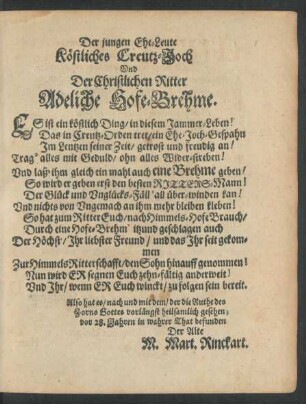 Der jungen Ehe-Leute
Köstliches Creutz-Joch
Und
Der Christlichen Ritter
Adeliche Hofe-Brehme.
ES ist ein köstlich Ding/ in diesem Jammer-Leben!
Das in Creutz-Orden tret/ ein Ehe-Joch-Gespahn
Im Lentzen seiner Zeit/ getrost und freudig an/
Trag' alles mit Geduld/ ohn alles Wider-streben!
Und laß ihm gleich ein mahl auch eine Brehme geben/
So wird er geben erst den besten RITTERS-Mann!
Der Glück und Unglücks-Fäll' all über-winden kan!
Und nichts von Ungemach an ihm mehr bleiben kleben!
So hat zum Ritter Euch/ nach Himmels-Hofe Brauch/
Durch eine Hofe-Brehm' itzund geschlagen auch
Der Höchst/ Ihr liebster Freund/ und das Ihr seit gekom-
men
Zur Himmels Ritterschafft/ den Sohn hinauff genommen!
Nun wird ER segnen Euch zehn-fältig anderweit!
Und Ihr/ wenn ER Euch winckt/ zu folgen sein bereit.
Also hat es/ nach und mit dem/ der die Ruthe des
Zorns Gottes vorlängst heilsamlich gesehen;
vor 28. Jahren in wahrer That befunden
Der Alte
M. Mart. Rinckart.